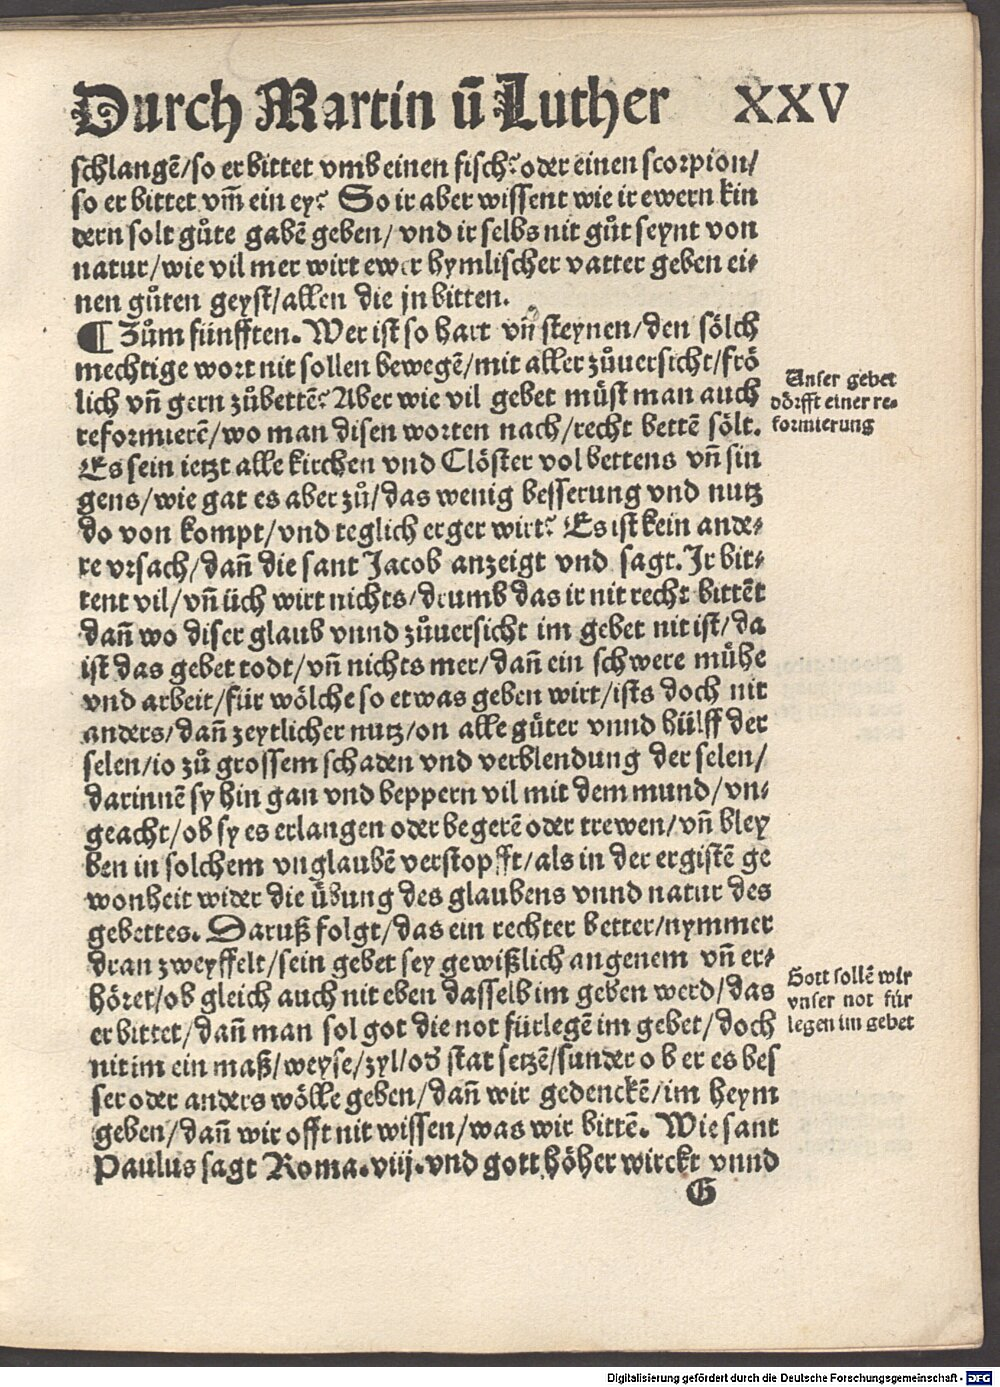 Durch Martinū Luther XXV
schlangē/so er bittet vmb einen fisch? oder einen scorpion/
so er bittet vm̄ ein ey? So ir aber wissent wie ir ewern kin
dern solt gůte gabē geben/ vnd ir selbs nit gůt seynt von
natur/wie vil mer wirt ewer hymlischer vatter geben ei⸗
nen gůten geyst/allen die jn bitten.
¶ Zům fünfften. Wer ist so hart vn̄ steynen/den sölch
mechtige wort nit sollen bewegē/mit aller zůuersicht/frö
lich vn̄ gern zůbettē? Aber wie vil gebet müst man auch
reformierē/wo man disen worten nach/recht bettē sölt.
Es sein ietzt alle kirchen vnd Clöster vol bettens vn̄ sin
gens/wie gat es aber zů/das wenig besserung vnd nutz
do von kompt/vnd teglich erger wirt? Es ist kein ande⸗
re vrsach/dan̄ die sant Jacob anzeigt vnd sagt. Ir bit⸗
tent vil/vn̄ üch wirt nichts/drumb das ir nit recht bittēt
dan̄ wo diser glaub vnnd zůuersicht im gebet nit ist/da
ist das gebet todt/vn̄ nichts mer/dan̄ ein schwere mühe
vnd arbeit/für wölche so etwas geben wirt/ists doch nit
anders/dan̄ zeytlicher nutz/on alle güter vnnd hülff der
selen/io zů grossem schaden vnd verblendung der selen/
darinnē sy hin gan vnd beppern vil mit dem mund/vn⸗
geacht/ob sy es erlangen oder begerē oder trewen/vn̄ bley
ben in solchem vnglaubē verstopfft/als in der ergistē ge
wonheit wider die übung des glaubens vnnd natur des
gebettes. Daruß folgt/das ein rechter better/nymmer
dran zweyffelt/sein gebet sey gewißlich angenem vn̄ er⸗
höret/ob gleich auch nit eben dasselb im geben werd/das
er bittet/dan̄ man sol got die not fürlegē im gebet/doch
nit im ein maß/weyse/zyl/od̄ stat setzē/sunder ob er es bes
ser oder anders wölle geben/dan̄ wir gedenckē/im heym
geben/dan̄ wir offt nit wissen/was wir bittē. Wie sant
Paulus sagt Roma.viij.vnd gott höher wirckt vnnd
G
Vnser gebet
dörfft einer re⸗
formierung
Gott sollē wir
vnser not für
legen im gebet
Digitalisierung gefördert durch die Deutsche Forschungsgemeinschaft - DFG